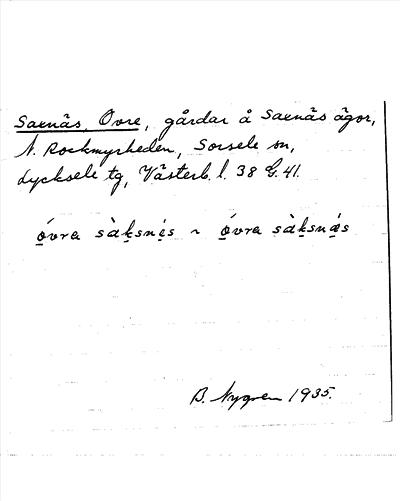 Saxnäs, Övre, gårdar å Saxnäs ägor,
N. Rockmyrheden, Sorsele sn,
Lycksele tg, Västerb. l. 38 G. 41.
ó̱vra sàḵsnẹs ~ ó̱vra sàḵsnä̱s
B. Nygren 1935.